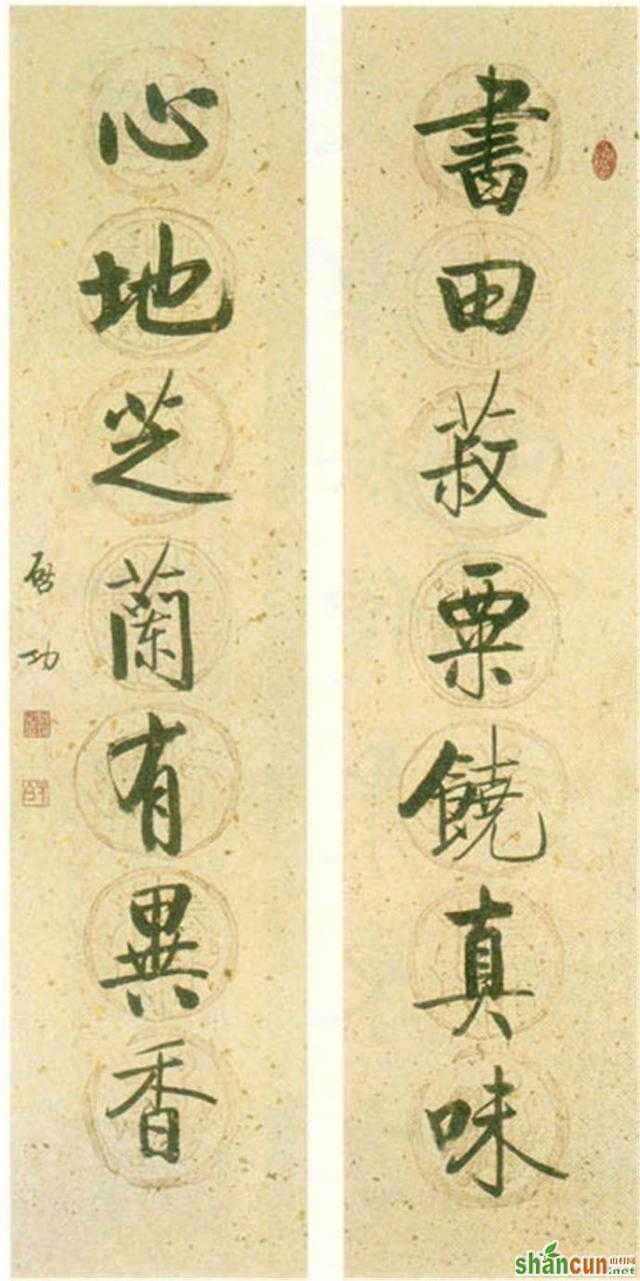 書田菽粟饒真味
心地芝蘭有異香
啓功
shancun
山村网
.net